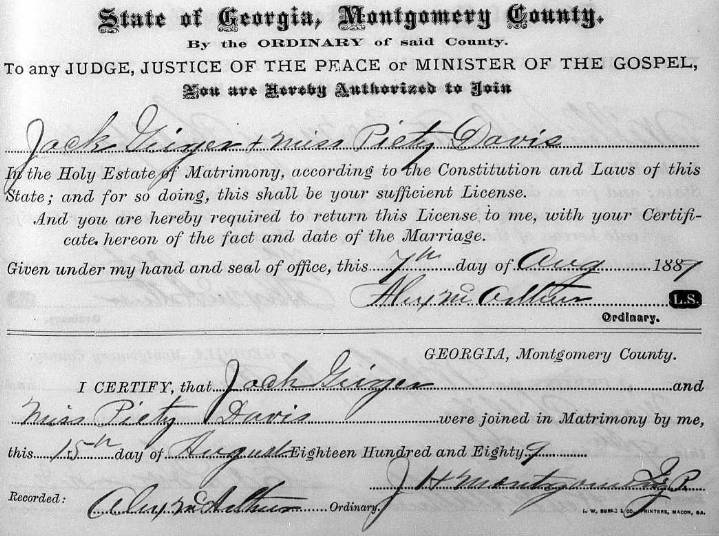 State of Georgia, Montgomery County.
By the ORDINARY of said County.
To any JUDGE, JUSTICE OF THE PEACE or MINISTER OF THE GOSPEL,
You are Hereby Authorized to Join
Jack Geiger & Miss Piety Davis
In the Holy Estate of Matrimony, according to the Constitution and Laws of this
State; and for so doing, this shall be your sufficient License.
And you are hereby required to return this License to me, with your Certifi-
cate hereon of the fact and date of the Marriage.
Given under my hand and seal of office, this 7th day of Aug 1889
Alex McArthur L.S.
Ordinary.
GEORGIA, Montgomery County.
I CERTIFY, that Jack Geiger and
Miss Piety Davis were joined in Matrimony by me,
this 15th day of August Eighteen Hundred and Eighty 9
J H Montgomery J.P.
Recorded: Alex McArthur Ordinary.
J. W. BURKE & CO., PRINTERS, MACON, GA.